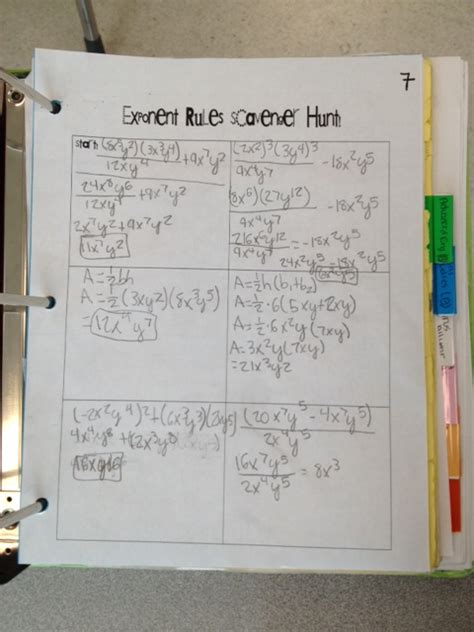 7
Exponent Rules Scavenger Hunt
start: (8x³y²)(3x⁵y⁴)/12xy⁴ + 9x⁷y²
24x⁸y⁶/12xy⁴ + 9x⁷y²
2x⁷y² + 9x⁷y²
11x⁷y²
(2x²)³(3y⁴)³/9x⁴y⁷ - 18x²y⁵
8x⁶)(27y¹²)/9x⁴y⁷ - 18x²y⁵
216x⁶y¹²/9x⁴y⁷ = -18x²y⁵
24x²y⁵ - 18x²y⁵
6x²y⁵
A=½bh
A=½(3xy²)(8x³y⁵)
=12x⁴y⁷
A=½h(b₁+b₂)
A=½·6(5xy+2xy)
A=½·6x²y(7xy)
A=3x²y(7xy)
=21x³y²
(-2x²y⁴)²+(6x³y³)(2xy⁵)
4x⁴y⁸ +
(20x⁷y⁵-4x⁷y⁵)/2x⁴y⁵
16x⁷y⁵/2x⁴y⁵ = 8x³